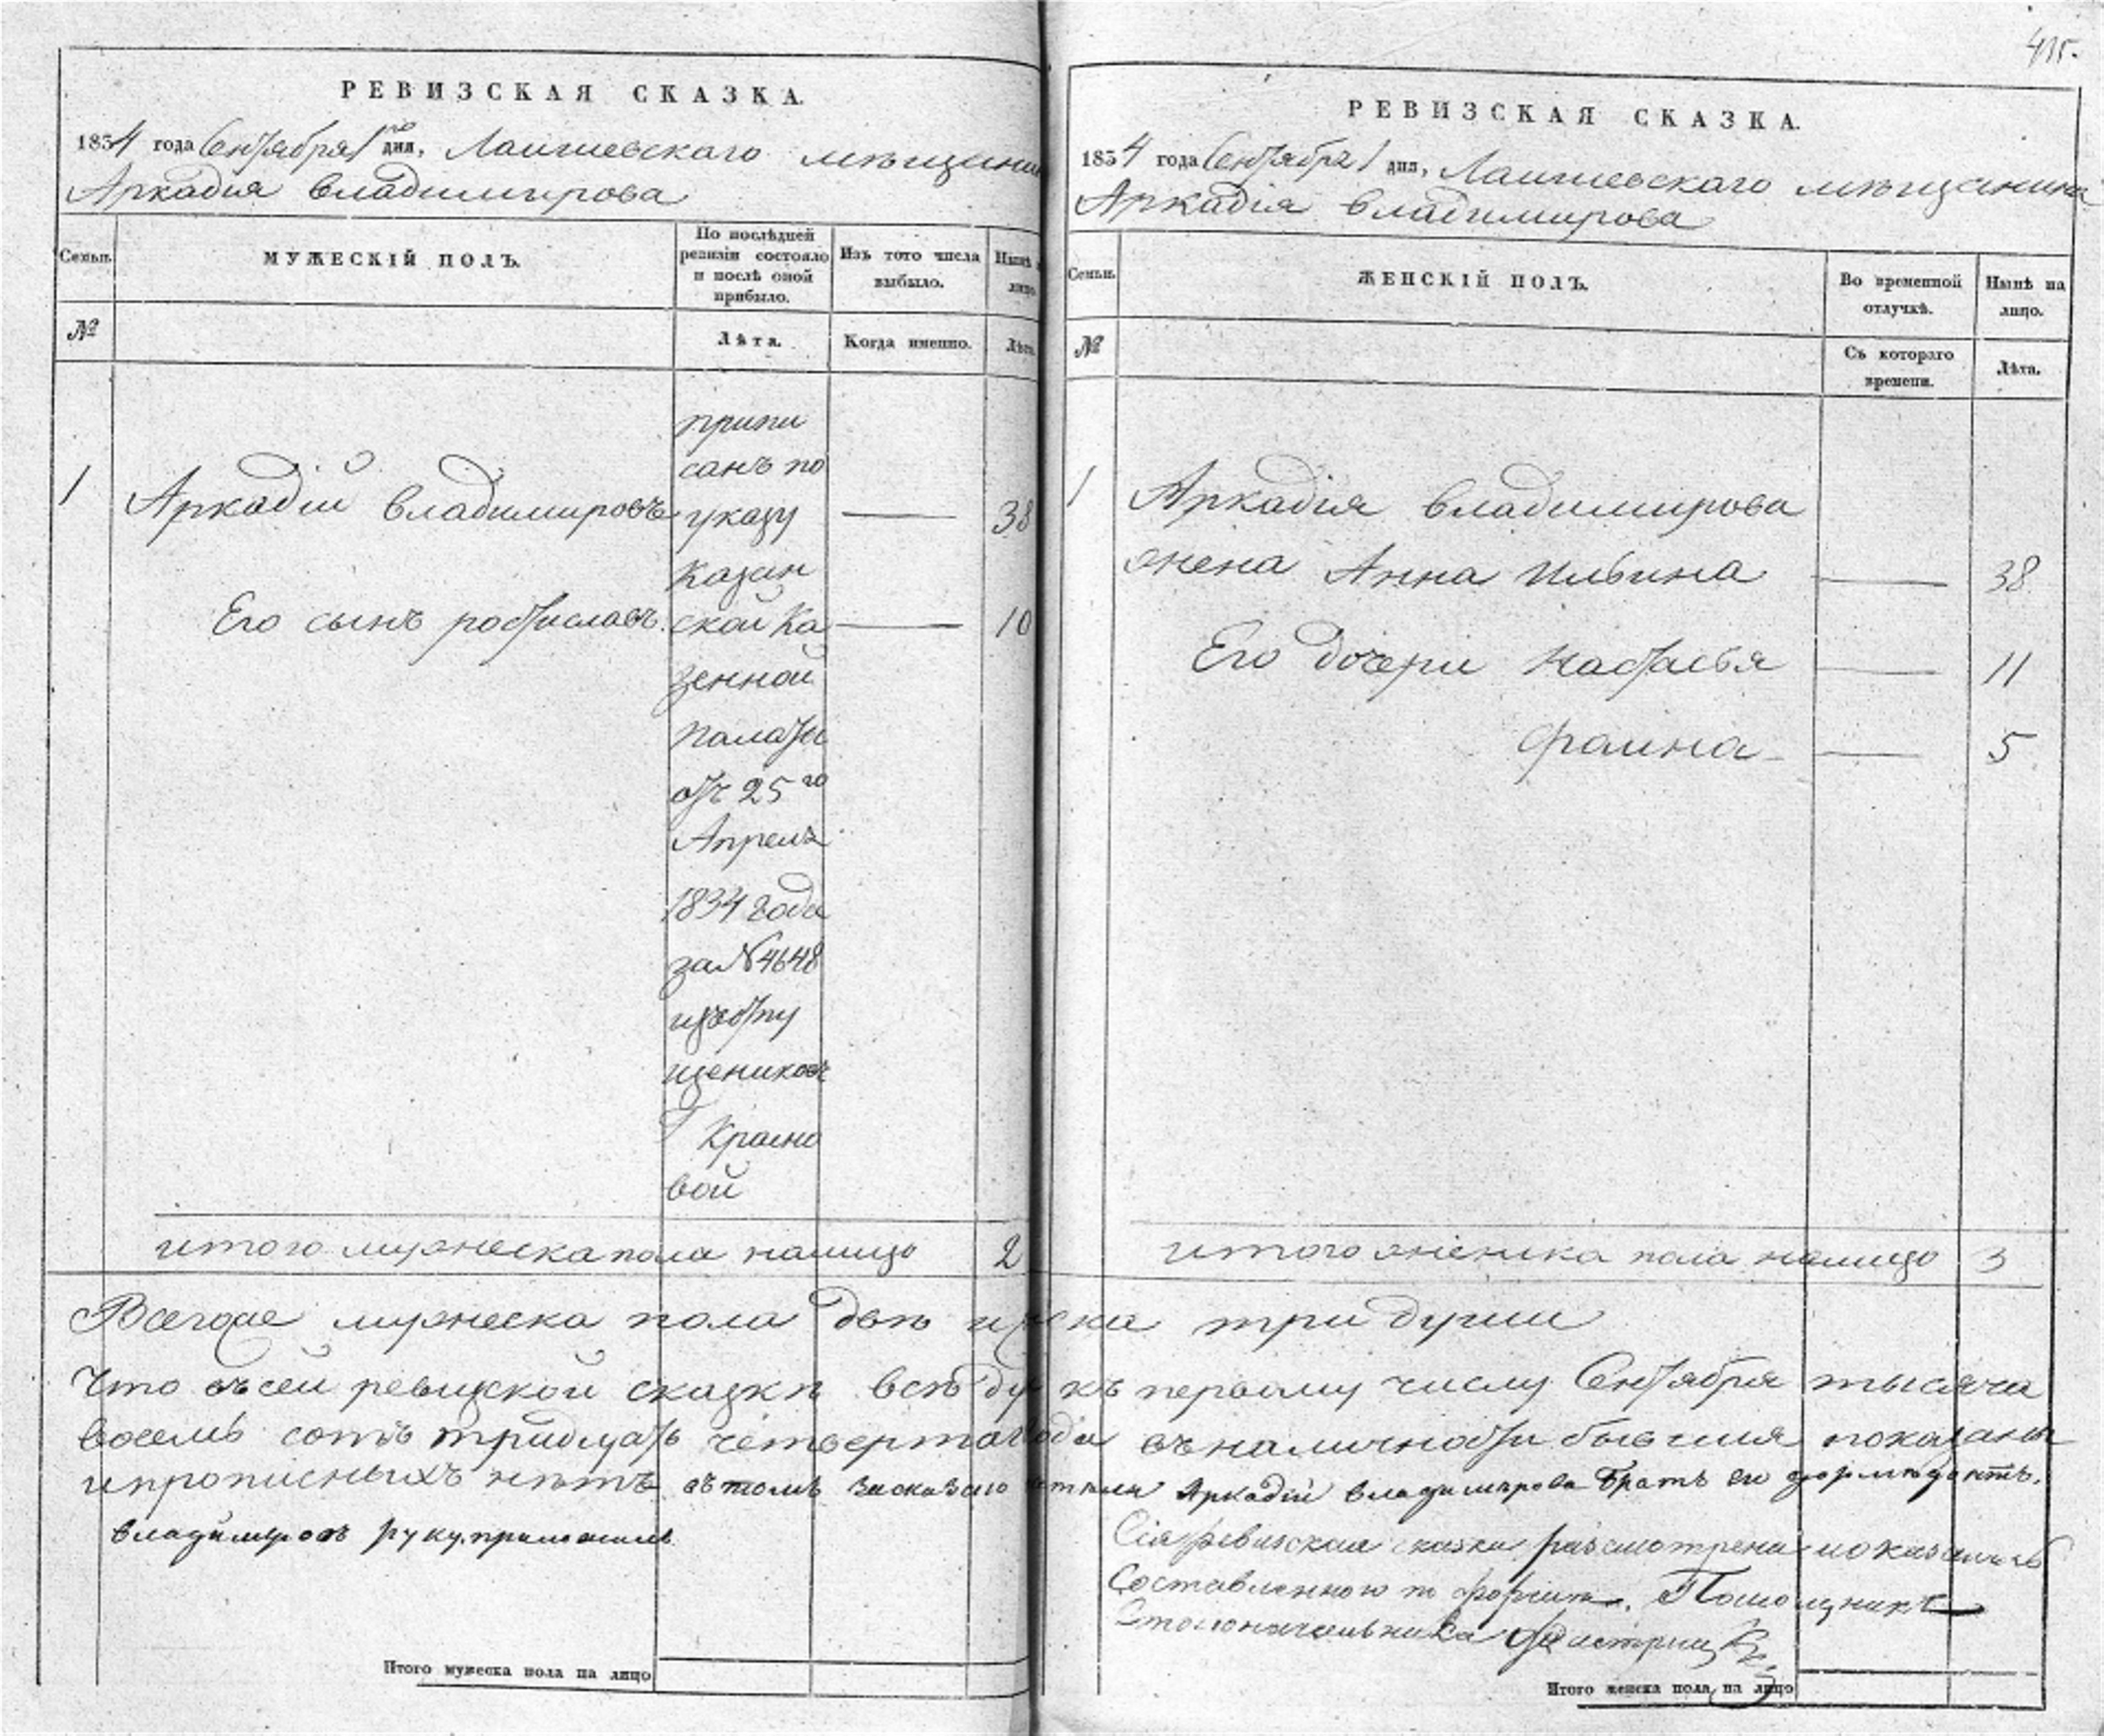 415.
РЕВИЗСКАЯ СКАЗКА.
1834 года Сентября 1го дня, Лаишевскаго мѣщанина
Аркадія Владимирова
Семьи.
МУЖЕСКІЙ ПОЛЪ.
По послѣдней
ревизіи состояло
и послѣ оной
прибыло.
Изъ того числа
выбыло.
Нынѣ
лицо.
№
Лѣта.
Когда именно.
Лѣта.
припи
санъ по
1 Аркадій Владимировъ указу — 38
Казан
Его сынъ Ростиславъ ской Ка — 10
зенной
Палаты
отъ 25го
Апреля
1834 года
за N 4648
изъ отпу
щениковъ
Г Красно
вой
итого мужеска пола налицо 2
РЕВИЗСКАЯ СКАЗКА.
1834 года Сентября 1 дня, Лаишевскаго мѣщанина
Аркадія Владимирова
Семьи.
ЖЕНСКІЙ ПОЛЪ.
Во временной
отлучкѣ.
Нынѣ на
лицо.
№
Съ котораго
времени.
Лѣта.
1 Аркадія Владимирова
жена Анна Ильина — 38
Его дочери Настасья — 11
Фаина — 5
итого женска пола налицо 3
Всего же мужеска пола двѣ и женска три души
Что въ сей ревизской сказкѣ всѣ ду къ первому числу Сентября тысяча
восемь сотъ тридцать четвертаго года въ наличности бывшия показаны
и прописныхъ нѣтъ въ томъ Аркадій Владимирова братъ его
Владимировъ руку приложилъ
Сія ревизская сказка разсмотрена и оказалась
Составленною по формѣ. Помощникъ
Столоначальника
Итого мужеска пола на лицо
Итого женска пола на лицо